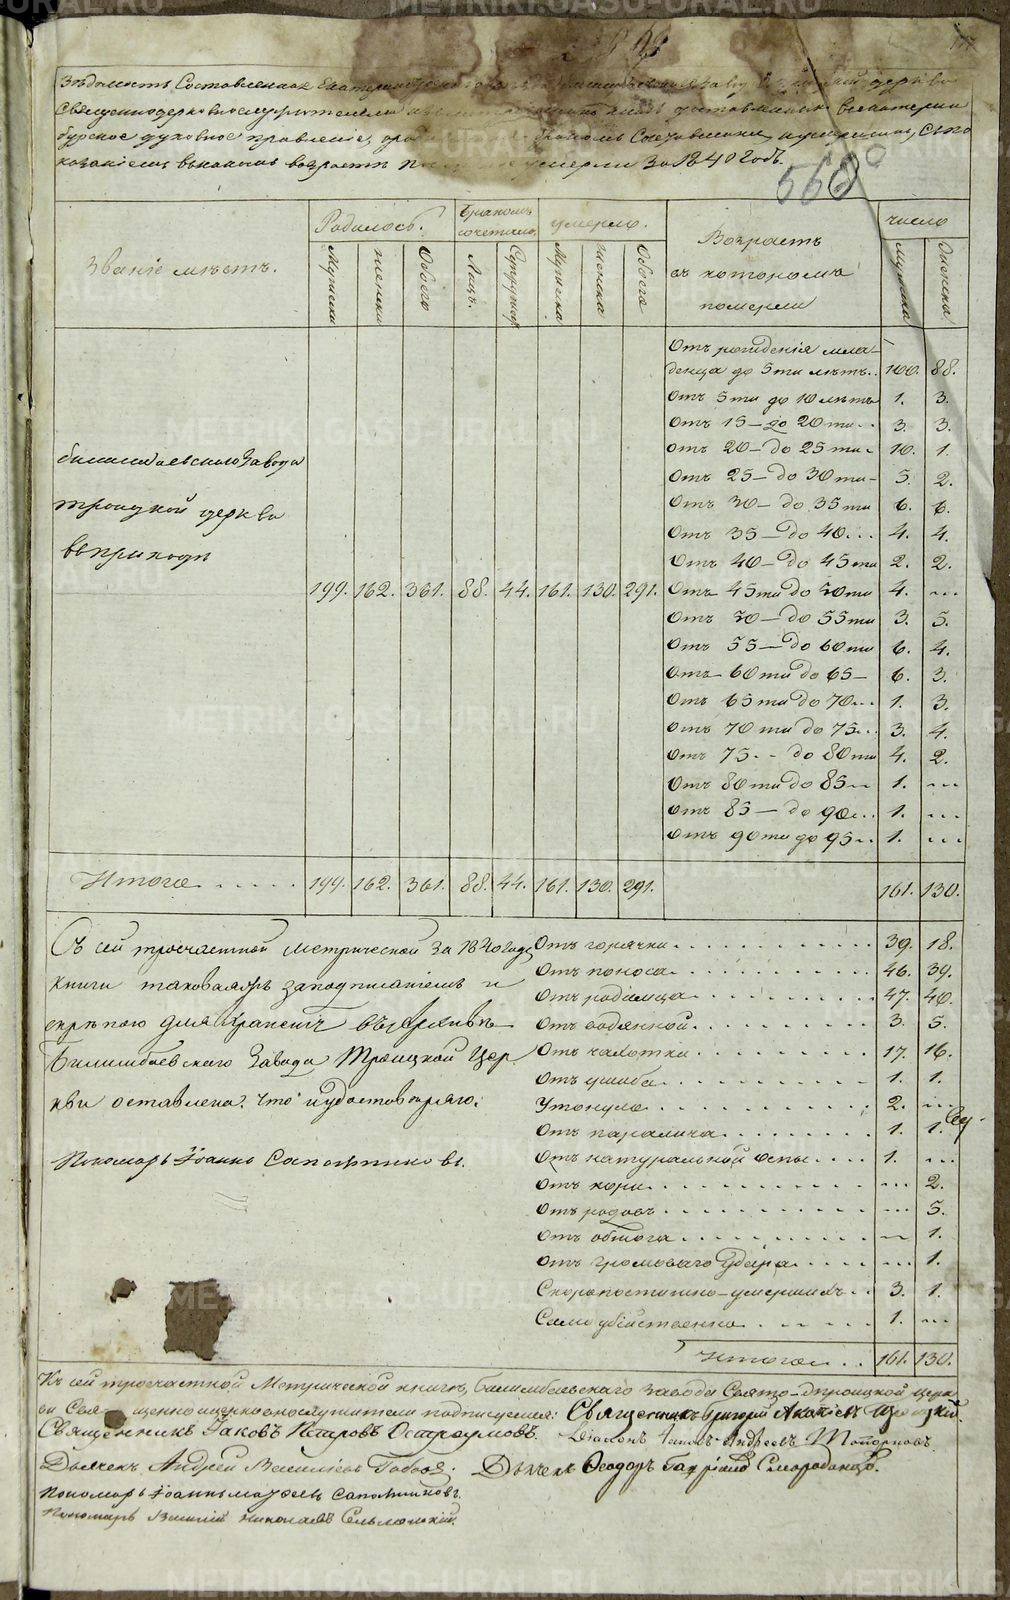 Вѣдомость Составленная Екатеринбургского
Священноцерковнослужителями
бургское духовное правленіе,
казаніемъ въ какомъ возрастѣ умерли За 1840 Годъ.
568
Званіе мѣстъ.
Родилось.
Бракомъ сочетано.
умерло.
Возрастъ въ которомъ померли
число
Мужеска
женска
Обоего
Лицъ.
Супружествъ
Мужеска
женска
Обоего
Мужеска
Женска.
билимбаевскаго Завода
троицкой церкви
въ приходѣ
199. 162. 361. 88. 44. 161. 130. 291.
Отъ рожденія мла-
денца до 5ти лѣтъ.. 100. 88.
Отъ 5ти до 10 лѣтъ 1. 3.
Отъ 15 – до 20ти.. 3. 3.
отъ 20 – до 25ти. 10. 1.
Отъ 25 – до 30ти – 5. 2.
Отъ 30 – до 35ти 6. 6.
Отъ 35 – до 40... 4. 4.
Отъ 40 – до 45ти 2. 2.
Отъ 45ти до 50ти 4. ...
Отъ 50 – до 55ти 3. 5.
Отъ 55 – до 60ти 6. 4.
Отъ 60ти до 65 – 6. 3.
Отъ 65ти до 70... 1. 3.
Отъ 70ти до 75.. 3. 4.
Отъ 75.. до 80ти 4. 2.
Отъ 80ти до 85.. 1. ...
отъ 85 – до 90... 1. ...
отъ 90ти до 95.. 1. ...
Итого ..... 199. 162. 361. 88. 44. 161. 130. 291. 161. 130.
Съ сей троечастной Метрической за 1840 Годъ
книги таковаяжъ заподписаніемъ и
скрѣпою для храненія въ архивѣ
Билимбаевскаго Завода Троицкой Цер
кви оставлена. Что и удостоверяю:
Пономарь Іоаннъ Сапожниковъ.
Отъ горячки 39. 18.
Отъ поноса 46. 39.
Отъ родимца 47. 40.
Отъ водяной 3. 5.
Отъ чахотки 17. 16.
Отъ ушиба 1. 1.
Утонуло 2. ...
Отъ паралича 1. 1.
Отъ натуральной оспы 1. ...
Отъ кори ... 2.
Отъ родовъ ... 5.
Отъ обжога ... 1.
Отъ громоваго удара ... 1.
Скоропостижно-умершихъ 3. 1.
Само убійственно 1. ...
Итого .. 161. 130.
Къ сей троечастной Метрической книгѣ, билимбаевскаго завода Свято-троицкой церк
ви Священноцерковнослужители подписуемся: Священникъ Григорій
Священникъ Іаковъ Петровъ Остроумовъ. Діаконъ Андреевъ Топорковъ.
Дьячекъ Андрей Василіевъ Дьячекъ Ѳеодоръ Смородинцовъ.
Пономарь Іоаннъ Матѳеевъ Сапожниковъ.
Пономарь Василій Николаевъ
METRIKI.GASO-URAL.RU